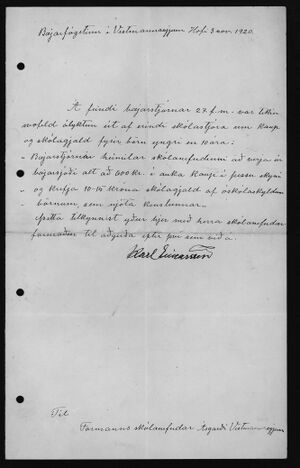 Bæjarfógetinn í Vestmannaeyjum Hofi 3 nóv. 1920.
Á fundi bæjarstjórnar 27. f.m. var tekin
svofeld ályktun út af erindi skólastjóra um kaup
og skólagjald fyrir börn yngri en 10 ára:
- Bæjarstjórnin heimilar skólanefndinni að verja úr
bæjarsjóði alt að 600 kr. í auka kaup í þessu skyni
- og krefja 10-15 króna skólagjald af óskólaskyldum
börnum, sem njóta kenslunnar. -
Þetta tilkynnist yður hjer með herra skólanefndar
formaður til aðgerða eftir því sem við á.
Karl Einarsson
Til
Formanns skólanefndar Ásgarði Vestmannaeyjum